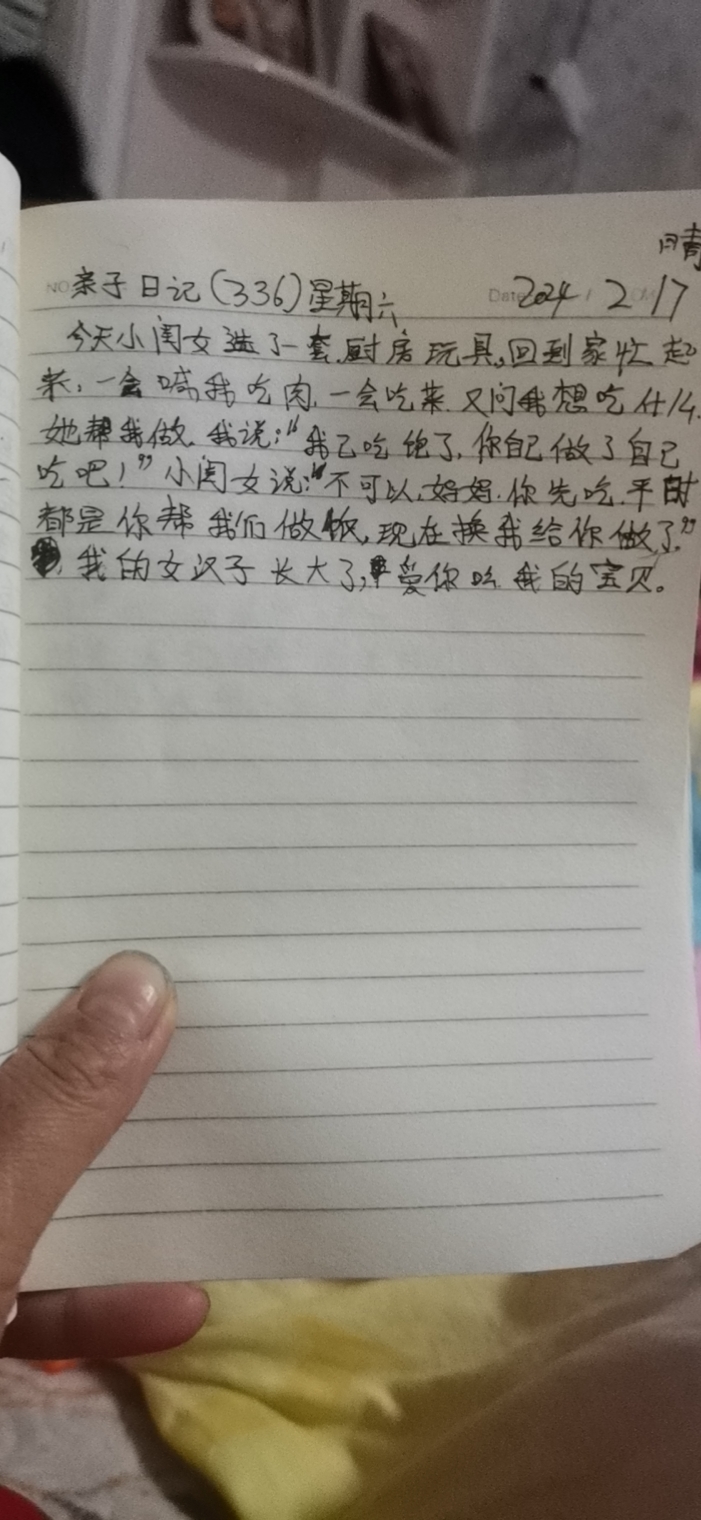 晴
亲子日记(336)星期六 2024 2 17
今天小闺女选了一套厨房玩具,回到家忙起
来,一会喊我吃肉,一会吃菜,又问我想吃什么,
她帮我做,我说:“我己吃饱了,你自己做了自己
吃吧!”小闺女说:“不可以,妈妈,你先吃,平时
都是你帮我们做饭,现在换我给你做了”
我的女汉子长大了,爱你吆我的宝贝。